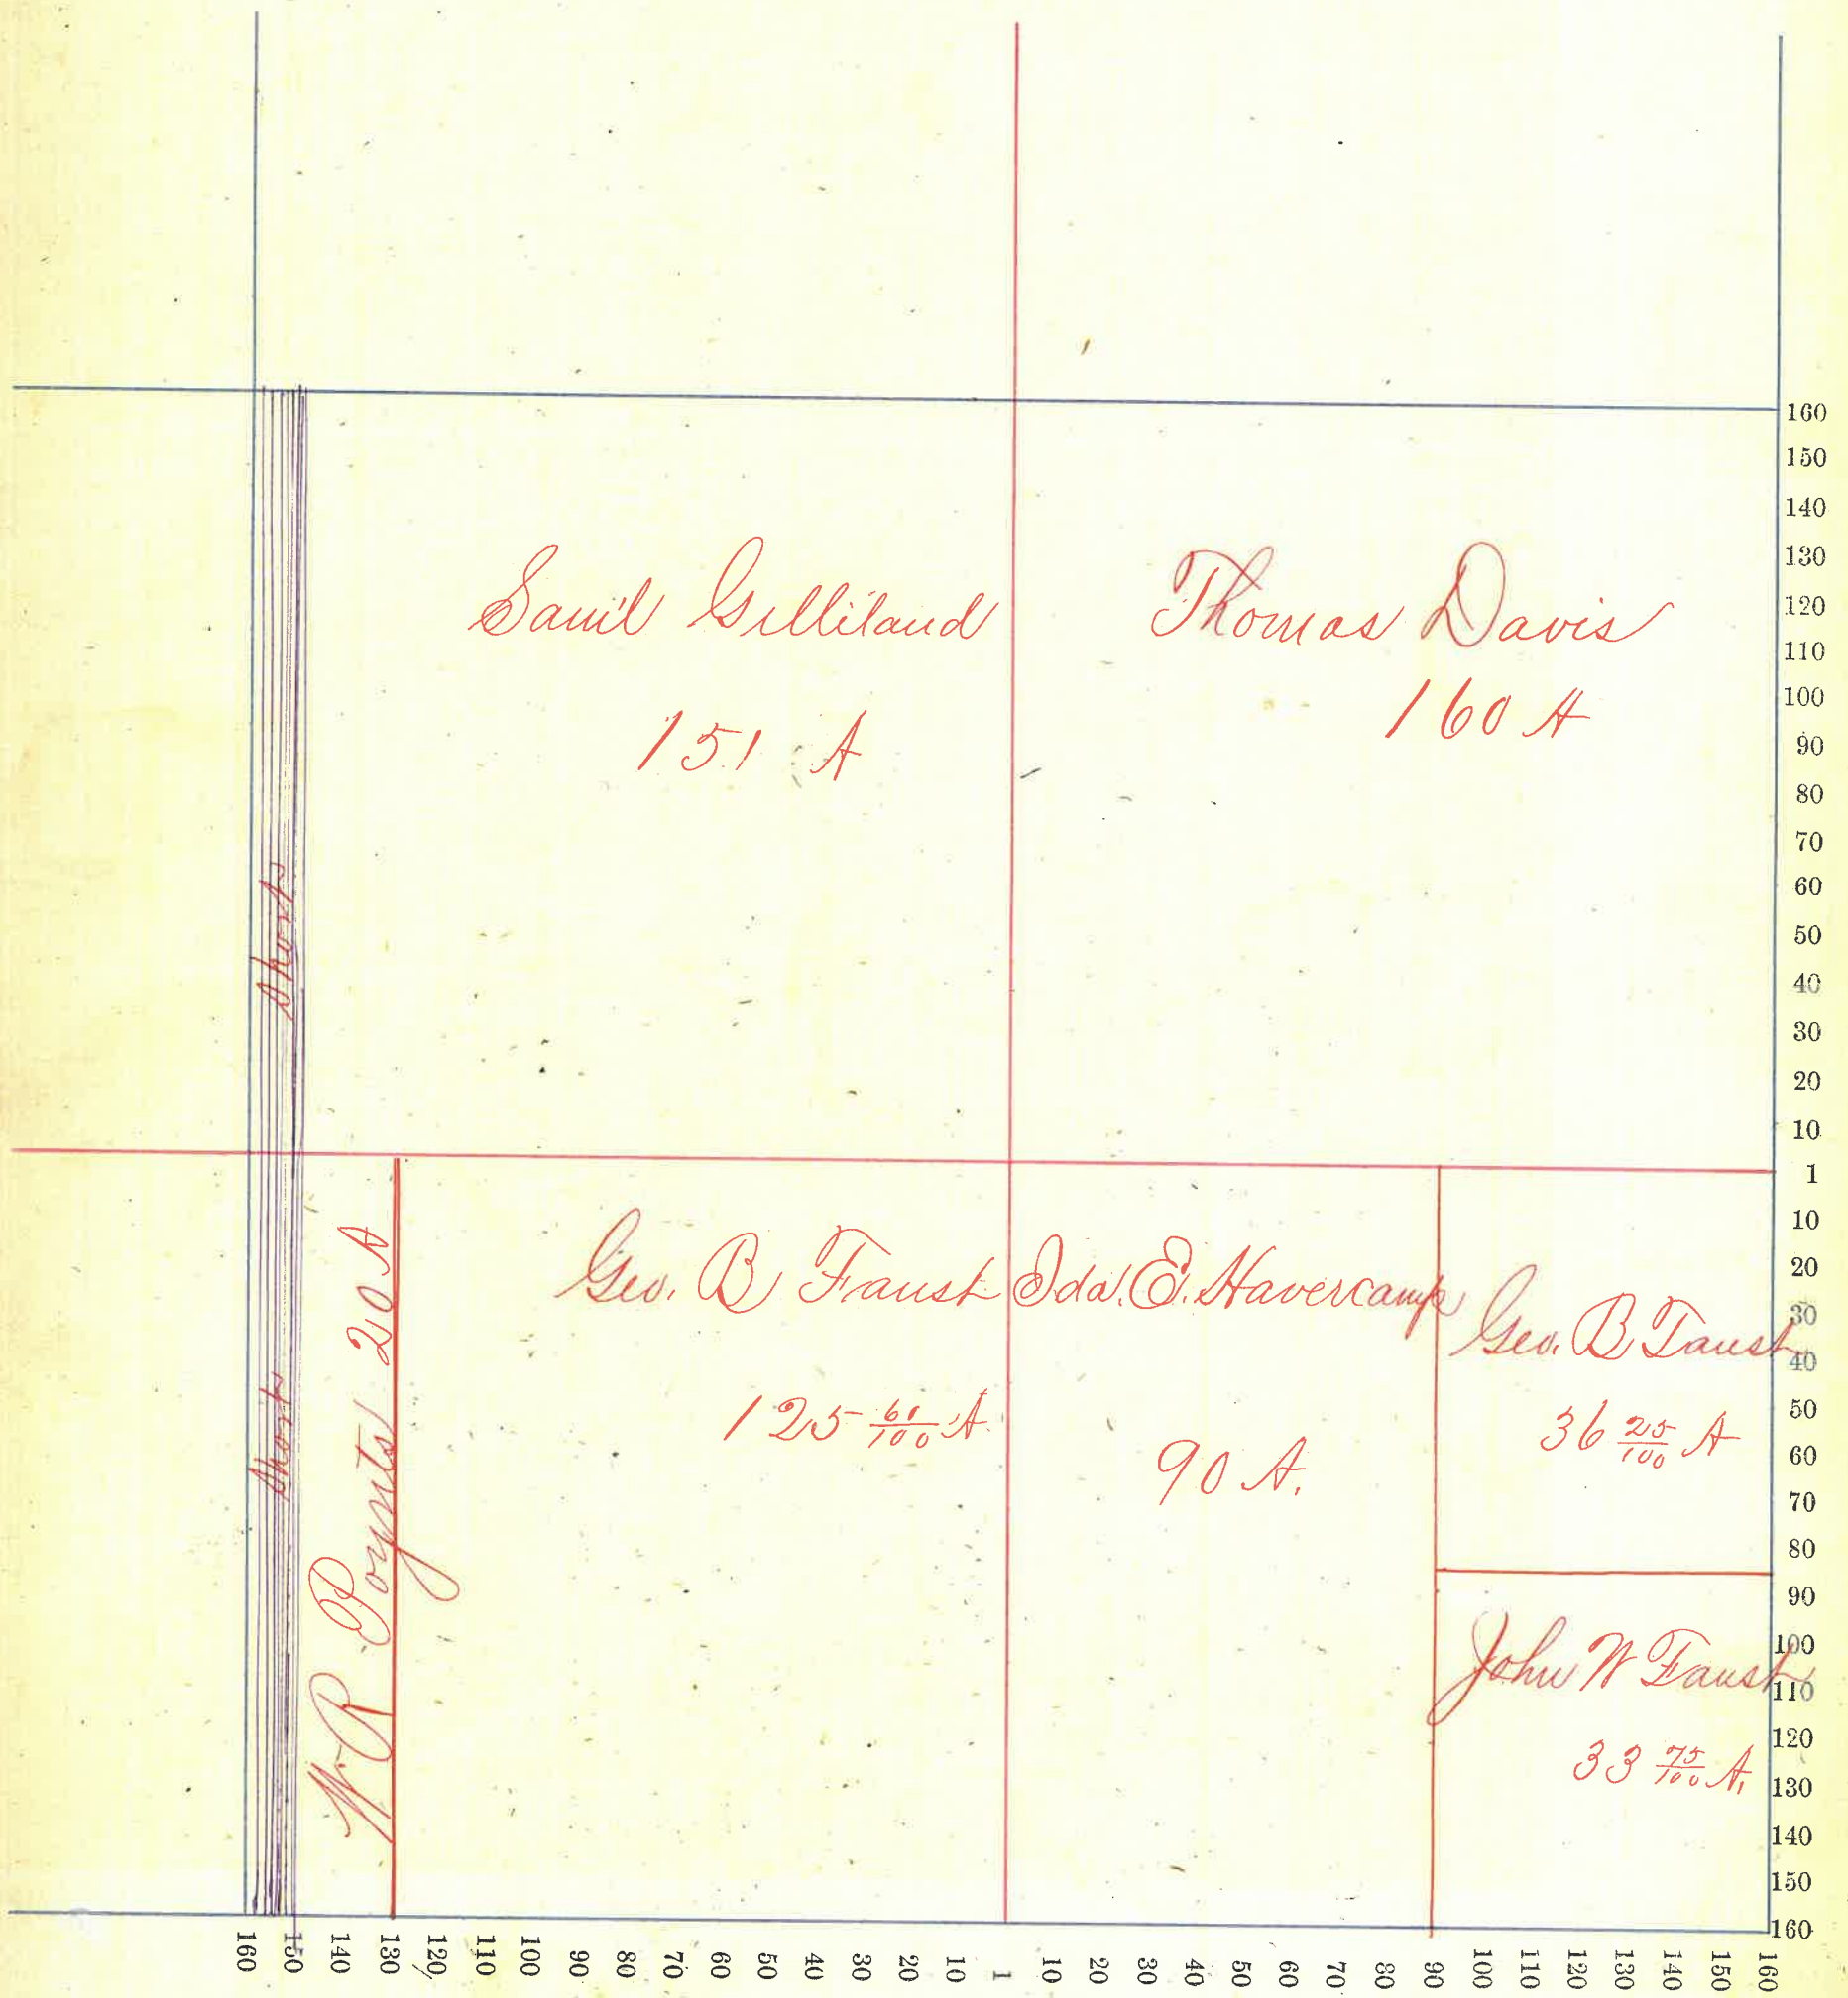 Saml Gilliland
151 A
Thomas Davis
160 A
Short
Short
W R Poynts 20 A
Geo. B Faust
125 61/100 A.
Ida. E. Havercamp
90 A.
Geo. B Faust
36 25/100 A
John W Faust
33 75/100 A.
160
150
140
130
120
110
100
90
80
70
60
50
40
30
20
10
1
10
20
30
40
50
60
70
80
90
100
110
120
130
140
150
160
160 150 140 130 120 110 100 90 80 70 60 50 40 30 20 10 1 10 20 30 40 50 60 70 80 90 100 110 120 130 140 150 160